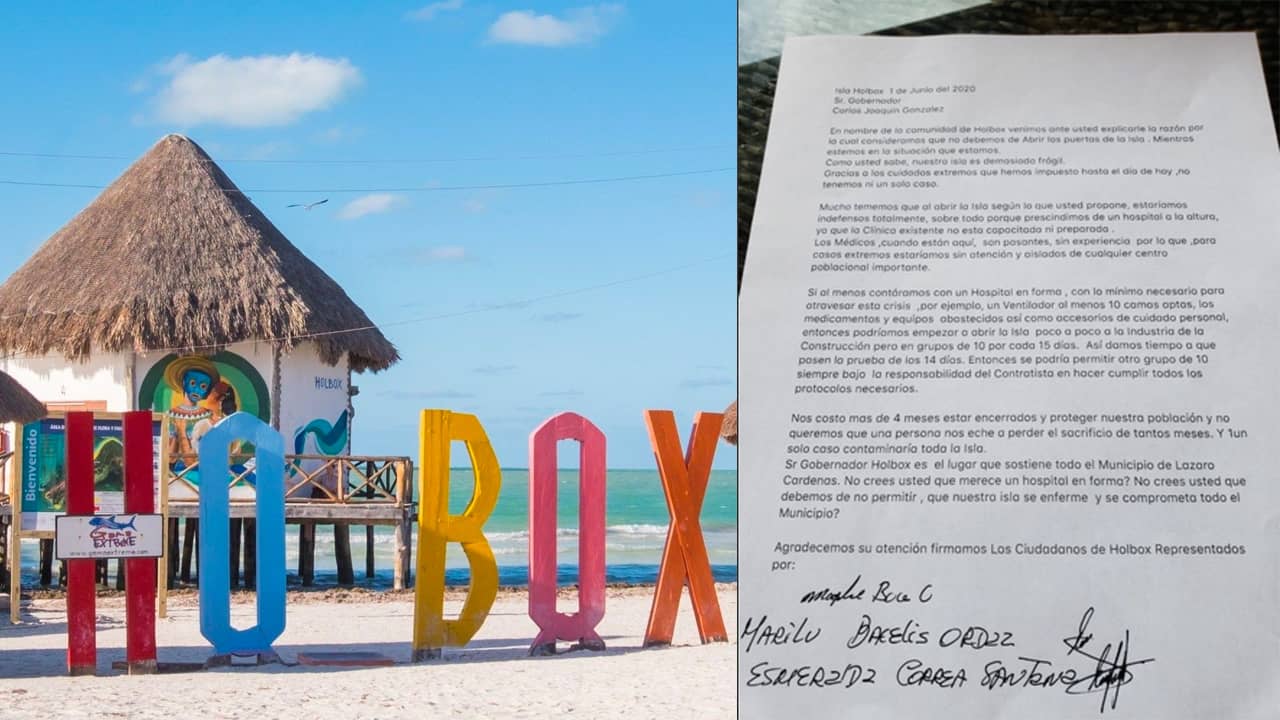 HOLBOX
Bienvenido
HOBOX
GEMA
EXTREME
www.gemaextreme.com
Isla Holbox 1 de Junio del 2020
Sr. Gobernador
Carlos Joaquin Gonzalez
En nombre de la comunidad de Holbox venimos ante usted explicarle la razón por
la cual consideramos que no debemos de Abrir las puertas de la Isla . Mientras
estemos en la situación que estamos.
Como usted sabe, nuestra isla es demasiado frágil.
Gracias a los cuidados extremos que hemos impuesto hasta el día de hoy ,no
tenemos ni un solo caso.
Mucho tememos que al abrir la Isla según lo que usted propone, estaríamos
indefensos totalmente, sobre todo porque prescindimos de un hospital a la altura,
ya que la Clínica existente no esta capacitada ni preparada .
Los Médicos ,cuando están aquí, son pasantes, sin experiencia por lo que ,para
casos extremos estaríamos sin atención y aislados de cualquier centro
poblacional importante.
Si al menos contáramos con un Hospital en forma , con lo mínimo necesario para
atravesar esta crisis ,por ejemplo, un Ventilador al menos 10 camas aptas, los
medicamentos y equipos abastecidos así como accesorios de cuidado personal,
entonces podríamos empezar a abrir la Isla poco a poco a la Industria de la
Construcción pero en grupos de 10 por cada 15 días. Así damos tiempo a que
pasen la prueba de los 14 días. Entonces se podría permitir otro grupo de 10
siempre bajo la responsabilidad del Contratista en hacer cumplir todos los
protocolos necesarios.
Nos costo mas de 4 meses estar encerrados y proteger nuestra población y no
queremos que una persona nos eche a perder el sacrificio de tantos meses. Y 1un
solo caso contaminaría toda la Isla.
Sr Gobernador Holbox es el lugar que sostiene todo el Municipio de Lazaro
Cardenas. No crees usted que merece un hospital en forma? No crees usted que
debemos de no permitir , que nuestra isla se enferme y se comprometa todo el
Municipio?
Agradecemos su atención firmamos Los Ciudadanos de Holbox Representados
por:
MARILU
CORREA SANTANA